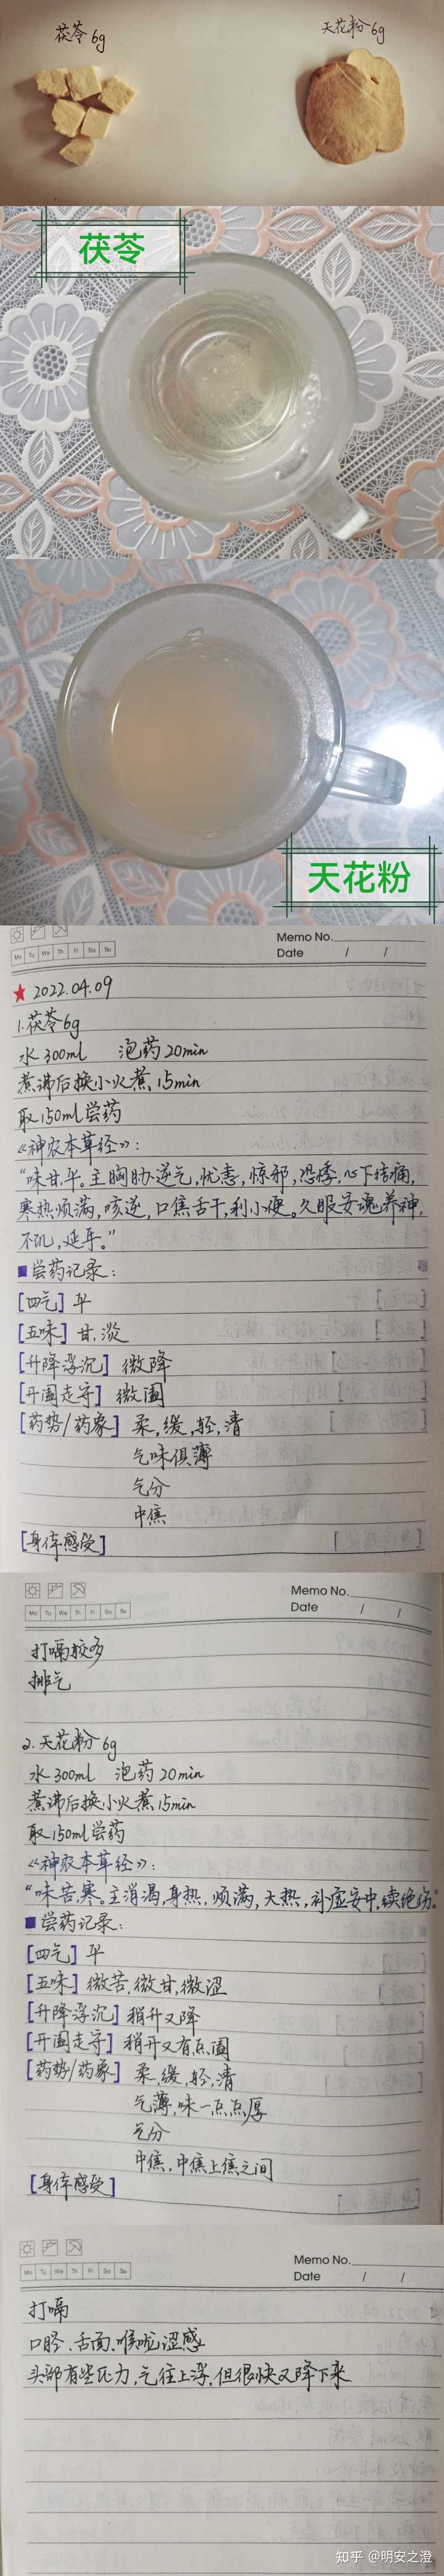 茯苓6g
天花粉6g
茯苓
天花粉
Mo Tu We Th Fr Sa Su
Memo No.
Date / /
★ 2022.04.09
1.茯苓6g
水300ml 泡药20min
煮沸后换小火煮15min
取150ml尝药
《神农本草经》:
“味甘,平。主胸胁逆气,忧恚,惊邪,恐悸,心下结痛,
寒热烦满,咳逆,口焦舌干,利小便。久服安魂养神,
不饥,延年。”
■尝药记录:
[四气] 平
[五味] 甘,淡
[升降浮沉] 微降
[开阖走守] 微阖
[药势/药象] 柔,缓,轻,清
气味俱薄
气分
中焦
[身体感受]
Mo Tu We Th Fr Sa Su
Memo No.
Date / /
打嗝较多
排气
2.天花粉6g
水300ml 泡药20min
煮沸后换小火煮15min
取150ml尝药
《神农本草经》:
“味苦,寒。主消渴,身热,烦满,大热,补虚安中,续绝伤。”
■尝药记录:
[四气] 平
[五味] 微苦,微甘,微涩
[升降浮沉] 稍升又降
[开阖走守] 稍开又有点阖
[药势/药象] 柔,缓,轻,清
气薄,味一点点厚
气分
中焦,中焦上焦之间
[身体感受]
Mo Tu We Th Fr Sa Su
Memo No.
Date / /
打嗝
口腔、舌面、喉咙涩感
头部有些压力,气往上浮,但很快又降下来
知乎 @明安之澄